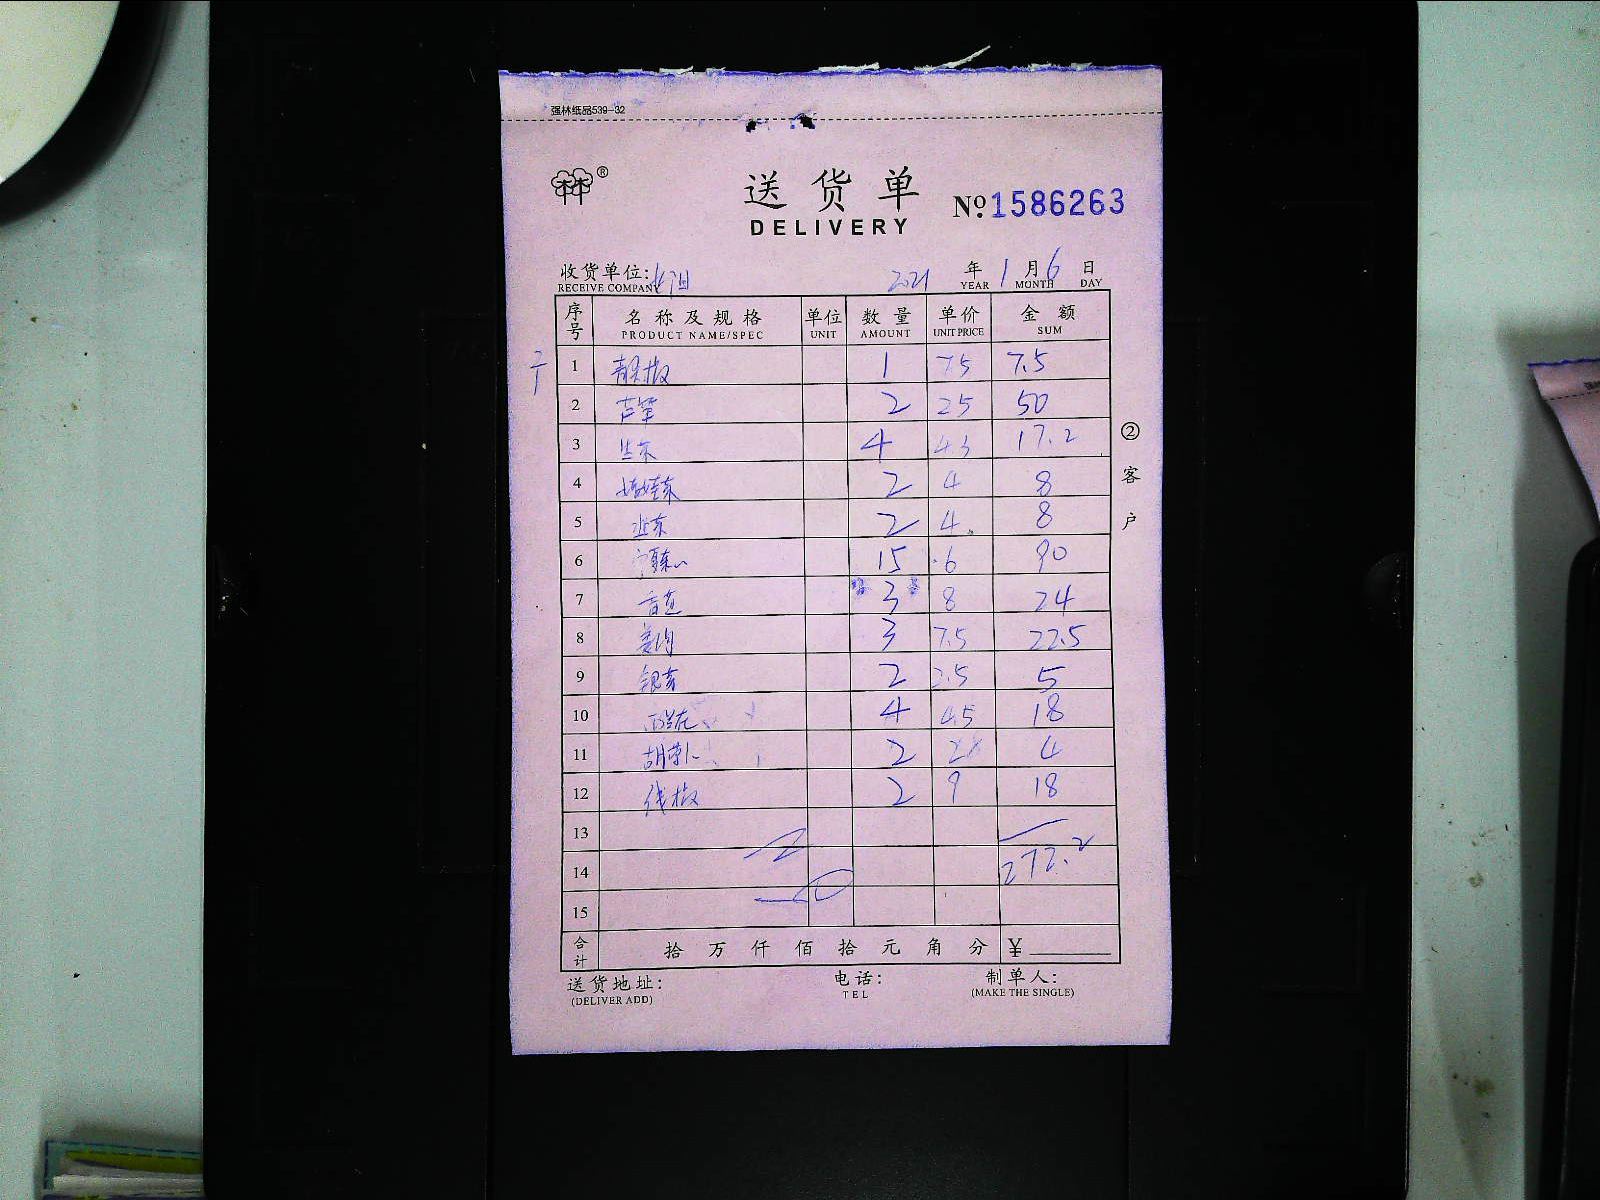 强林纸品539-32
林®
送货单 №1586263
DELIVERY
收货单位: 2021 年 1 月 6 日
RECEIVE COMPANY YEAR MONTH DAY
序号 名称及规格 单位 数量 单价 金额
PRODUCT NAME/SPEC UNIT AMOUNT UNIT PRICE SUM
1 青尖椒 1 7.5 7.5
2 芦笋 2 25 50
3 生菜 4 4.3 17.2
4 娃娃菜 2 4 8
5 2 4 8
6 15 6 90
7 3 8 24
8 3 7.5 22.5
9 银芽 2 2.5 5
10 西兰花 4 4.5 18
11 胡萝卜 2 2 4
12 线椒 2 9 18
13
14 272.2
15
合计 拾 万 仟 佰 拾 元 角 分 ¥
送货地址: 电话: 制单人:
(DELIVER ADD) TEL (MAKE THE SINGLE)
②客户